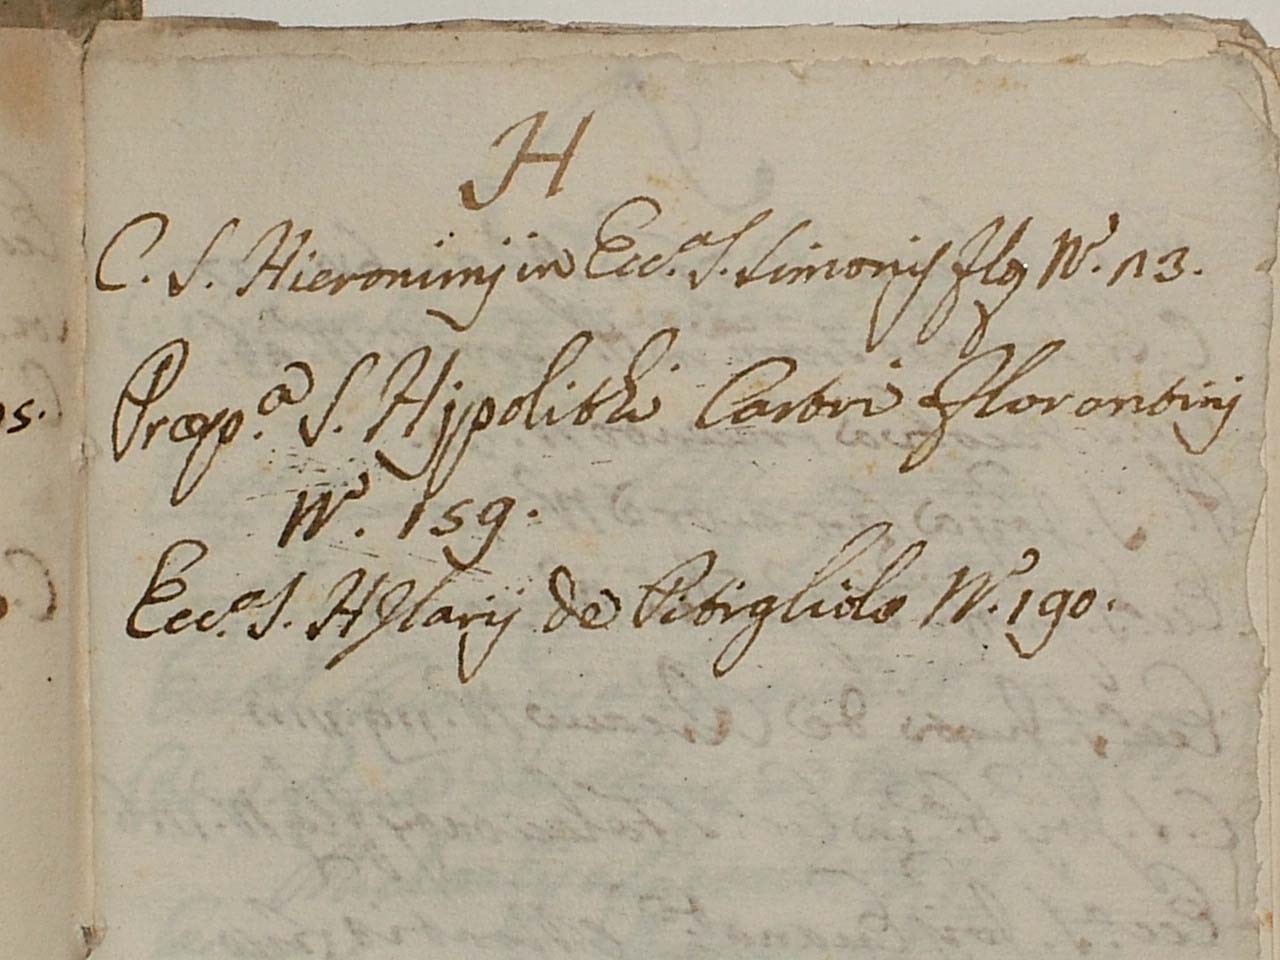 H
C. S. Hieronimij in Ecc.ª S. Simonis Flo N.º 13.
Præp.ª S. Hyppolithi Castri Florentinj
N.º 159.
Ecc.ª S. Hylarij de Pitigliolo N.º 190.